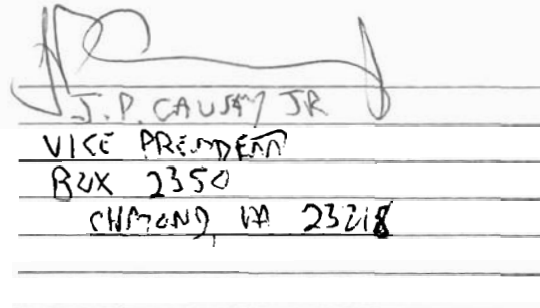 J.P. CAUSEY JR
VICE PRESIDENT
BOX 2350
CHMOND, VA 23218